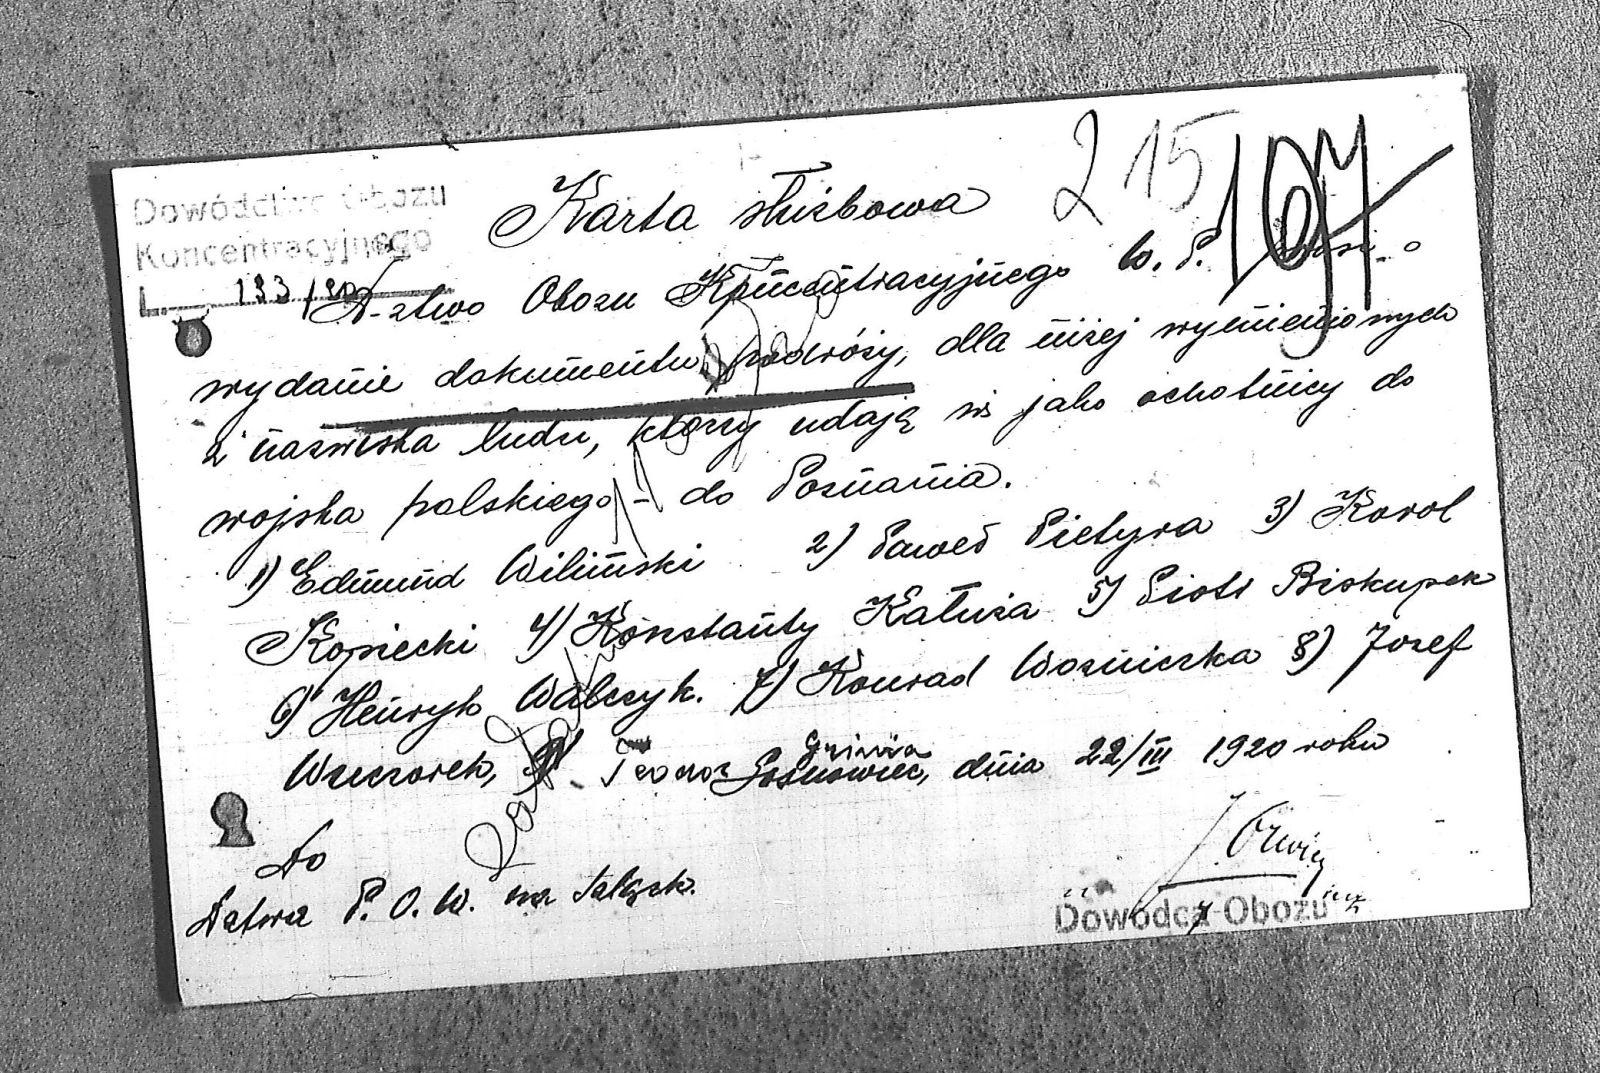 Dowództwo Obozu
Koncentracyjnego
L 133/20
215
107
Karta służbowa
D-ztwo Obozu Koncentracyjnego W. P. prosi o
wydanie dokumentu podróży, dla niżej wymienionych
z nazwiska ludzi, którzy udają się jako ochotnicy do
wojska polskiego - do Poznania.
1) Edmund Wiliński 2) Paweł Pietyra 3) Karol
Kopiecki 4) Konstanty Kałuża 5) Piotr Biskupek
6) Henryk Walczyk. 7) Konrad Woźniczka 8) Jozef
Wieczorek, 9. Teodor Gniwia
Sosnowiec, dnia 22/III 1920 roku
Do
Dztwa P. O. W. na Śląsk.
Dowódca Obozu